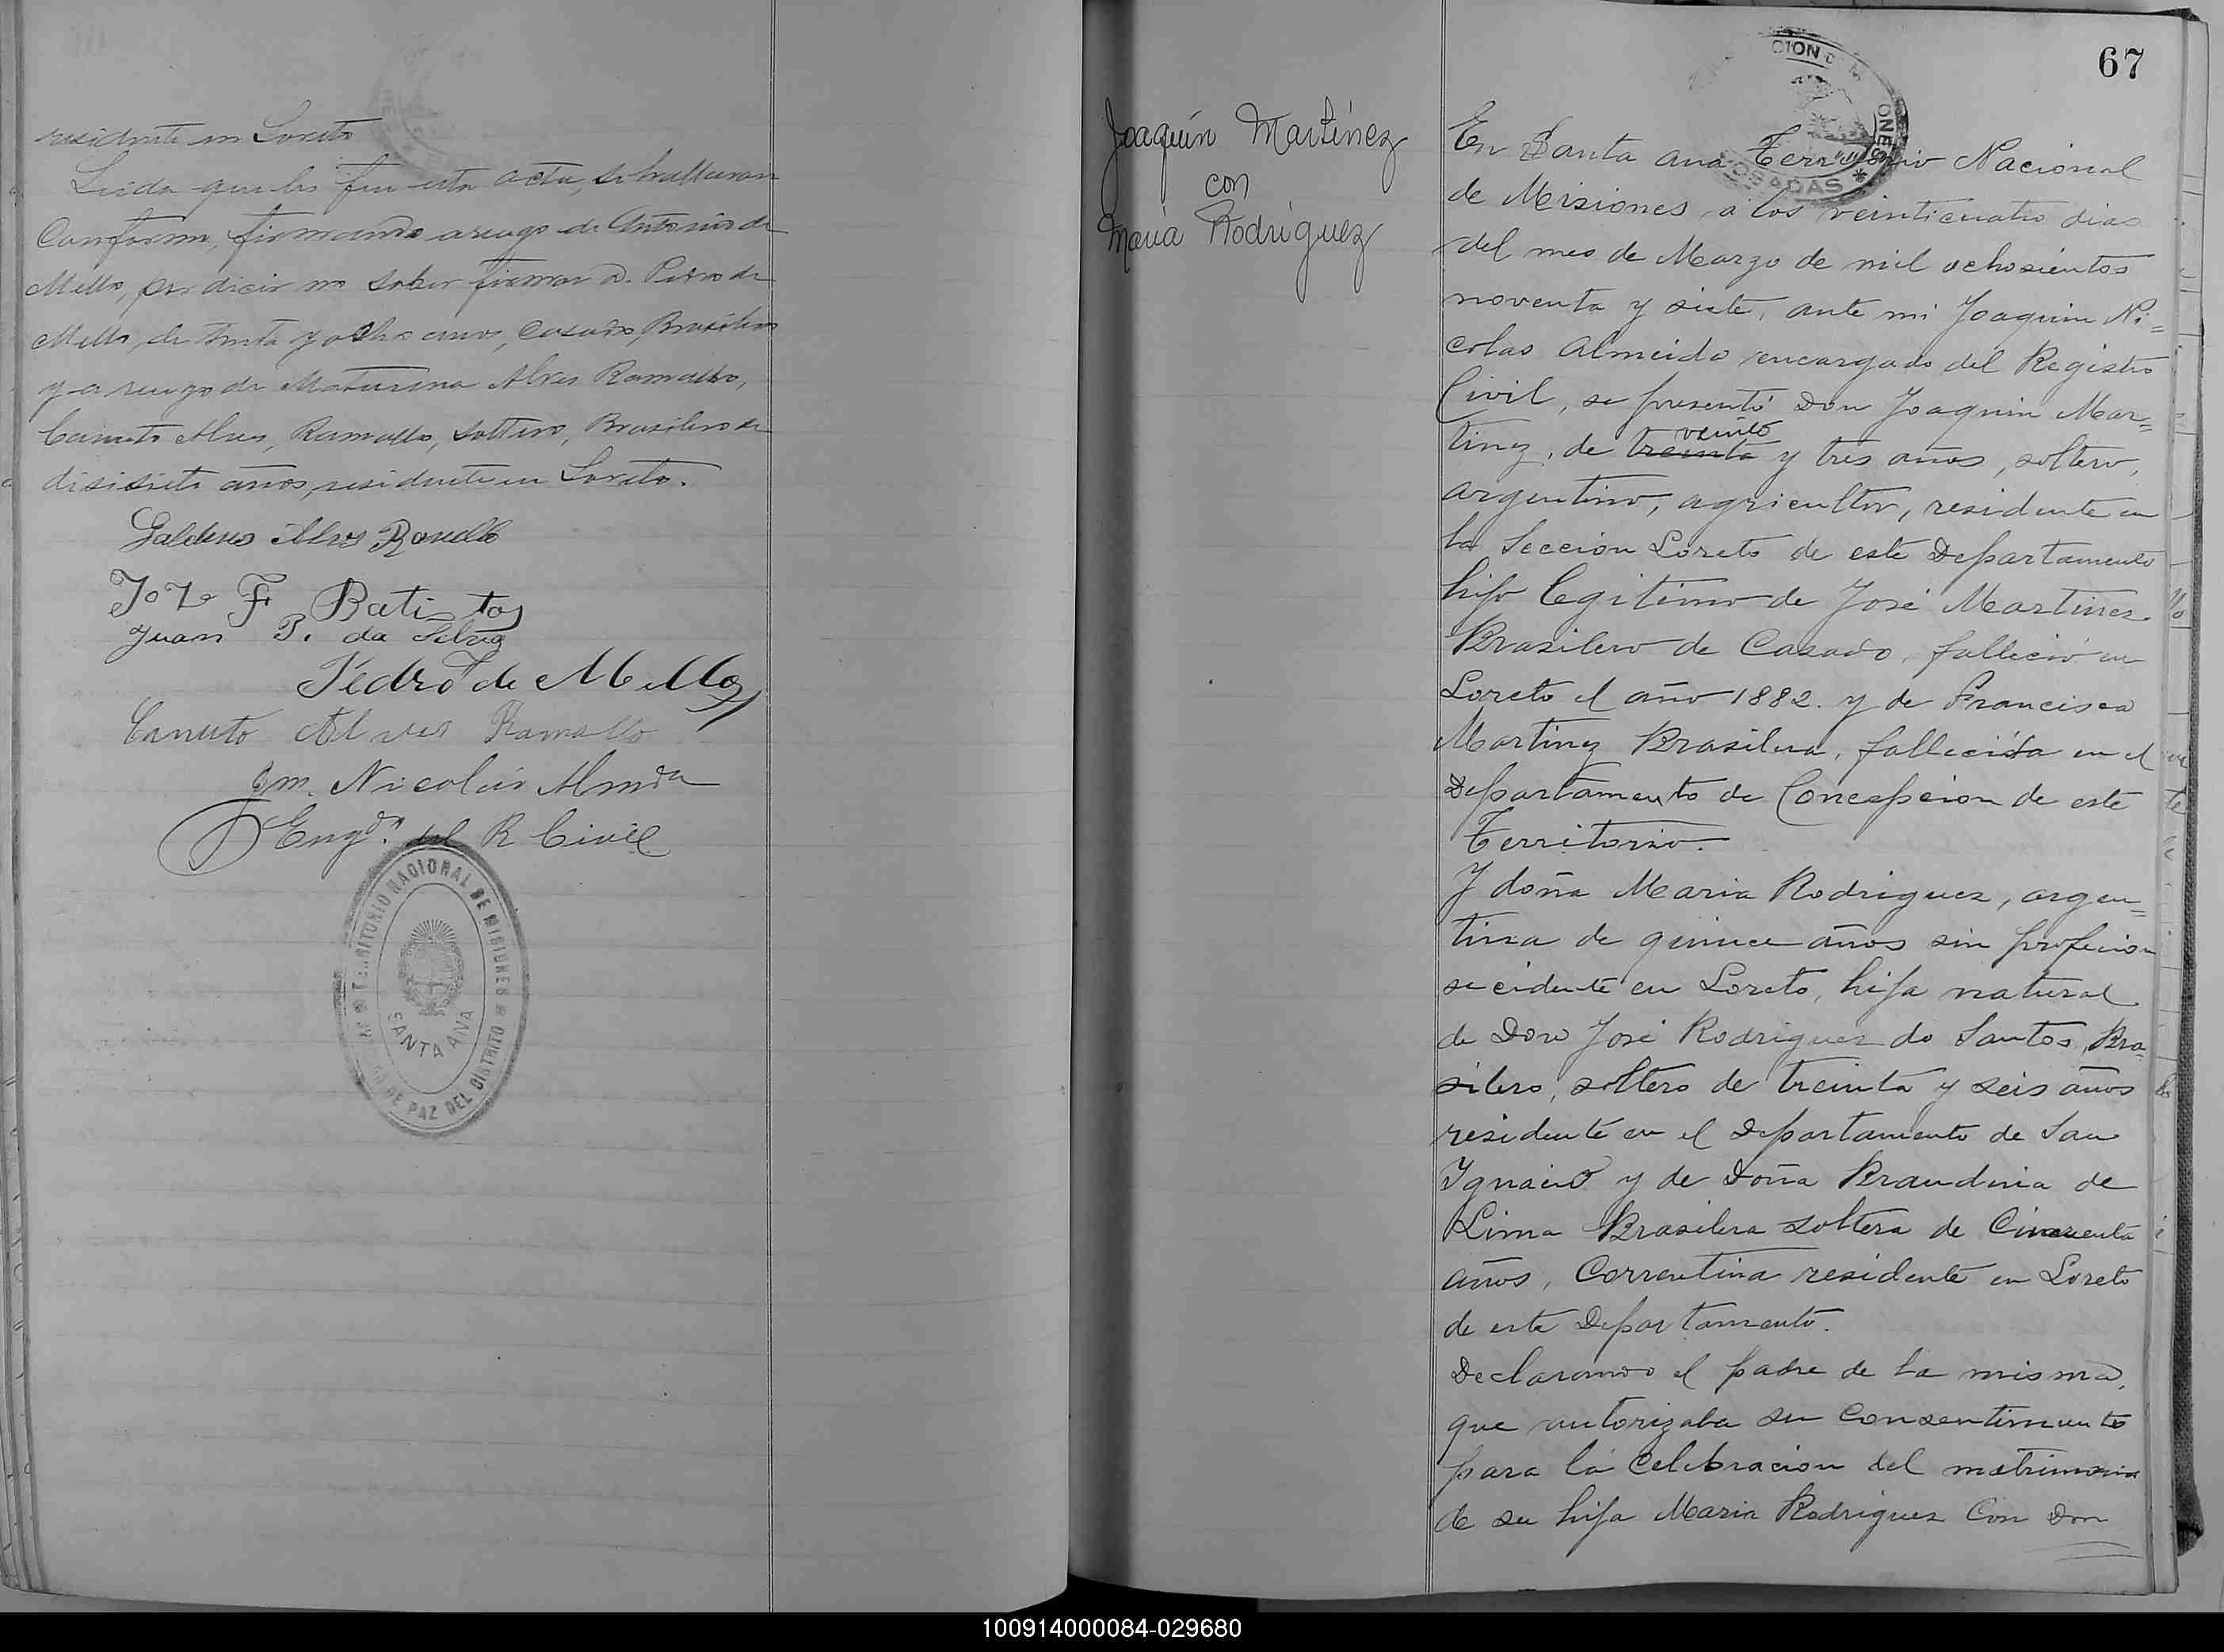 residente en Loreto
Leida que les fue esta acta, se hallaron
Conforme, firmando a ruego de Antonio de
Mello, por decir no saber firmar D. Pedro de
Mello, de treinta y ocho anos, Casado, Brasilero
y a ruego de Maturina Alves Ramallo,
Canuto Alves, Ramallo, soltero, Brasilero de
disisiete años, residente en Loreto.
Galdino Alves Ramallo
Joze F Batista
Juan P. da Silva
Pedro de Mello
Canuto Alves Ramallo
Jm. Nicolás Almda
Engdo. del R Civil
TERRITORIO NACIONAL DE MISIONES
SANTA ANA
DE PAZ DEL DISTRITO
67
CION
ONES
POSADAS *
Joaquín Martínez
con
María Rodríguez
En Santa ana Territorio Nacional
de Misiones, a los veinticuatro dias
del mes de Marzo de mil ochosientos
noventa y siete, ante mi Joaquin Ni=
colas Almeida encargado del Registro
Civil, se presentó Don Joaquin Mar=
veinte
tinez, de treinta y tres años, soltero,
argentino, agricultor, residente en
la Seccion Loreto de este Departamento
hijo legitimo de José Martines
Brasilero de Casado, fallecio en
Loreto el año 1882. y de Francisca
Martinez Brasilera, fallecida en el
Departamento de Concepcion de este
Territorio.
Y doña Maria Rodriguez, argen=
tina de quince años sin profecion
recidente en Loreto, hija natural
de Don José Rodriguez do Santos, Bra-
silero, soltero de treinta y seis años
residente en el Departamento de San
Ignacio y de Doña Braudina de
Lima Brasilera soltera de Cincuenta
años, Correntina residente en Loreto
de este Departamento.
Declarando el padre de la misma,
que autorizaba su Consentimiento
para la Celebracion del matrimonio
de su hija Maria Rodriguez Con Don
100914000084-029680